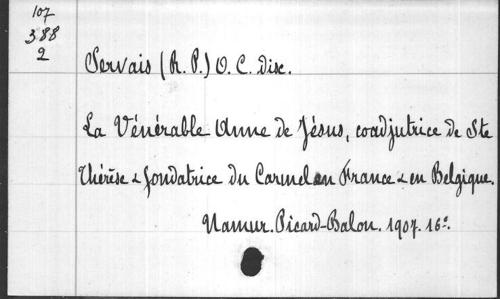 107
388
2
Servais (R. P.) O. C. disc.
La Vénérable Anne de Jésus, coadjutrice de Ste
Thérèse & fondatrice du Carmel en France & en Belgique.
Namur. Picard-Balon. 1907. 16º.